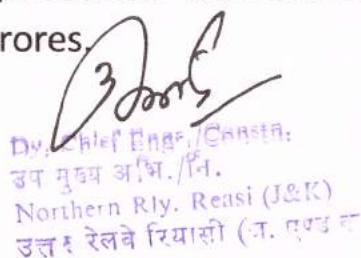 rores.
Dy. Chief Engr./Constn.
उप मुख्य अभि./नि.
Northern Rly. Reasi (J&K)
उत्तर रेलवे रियासी (ज. एण्ड